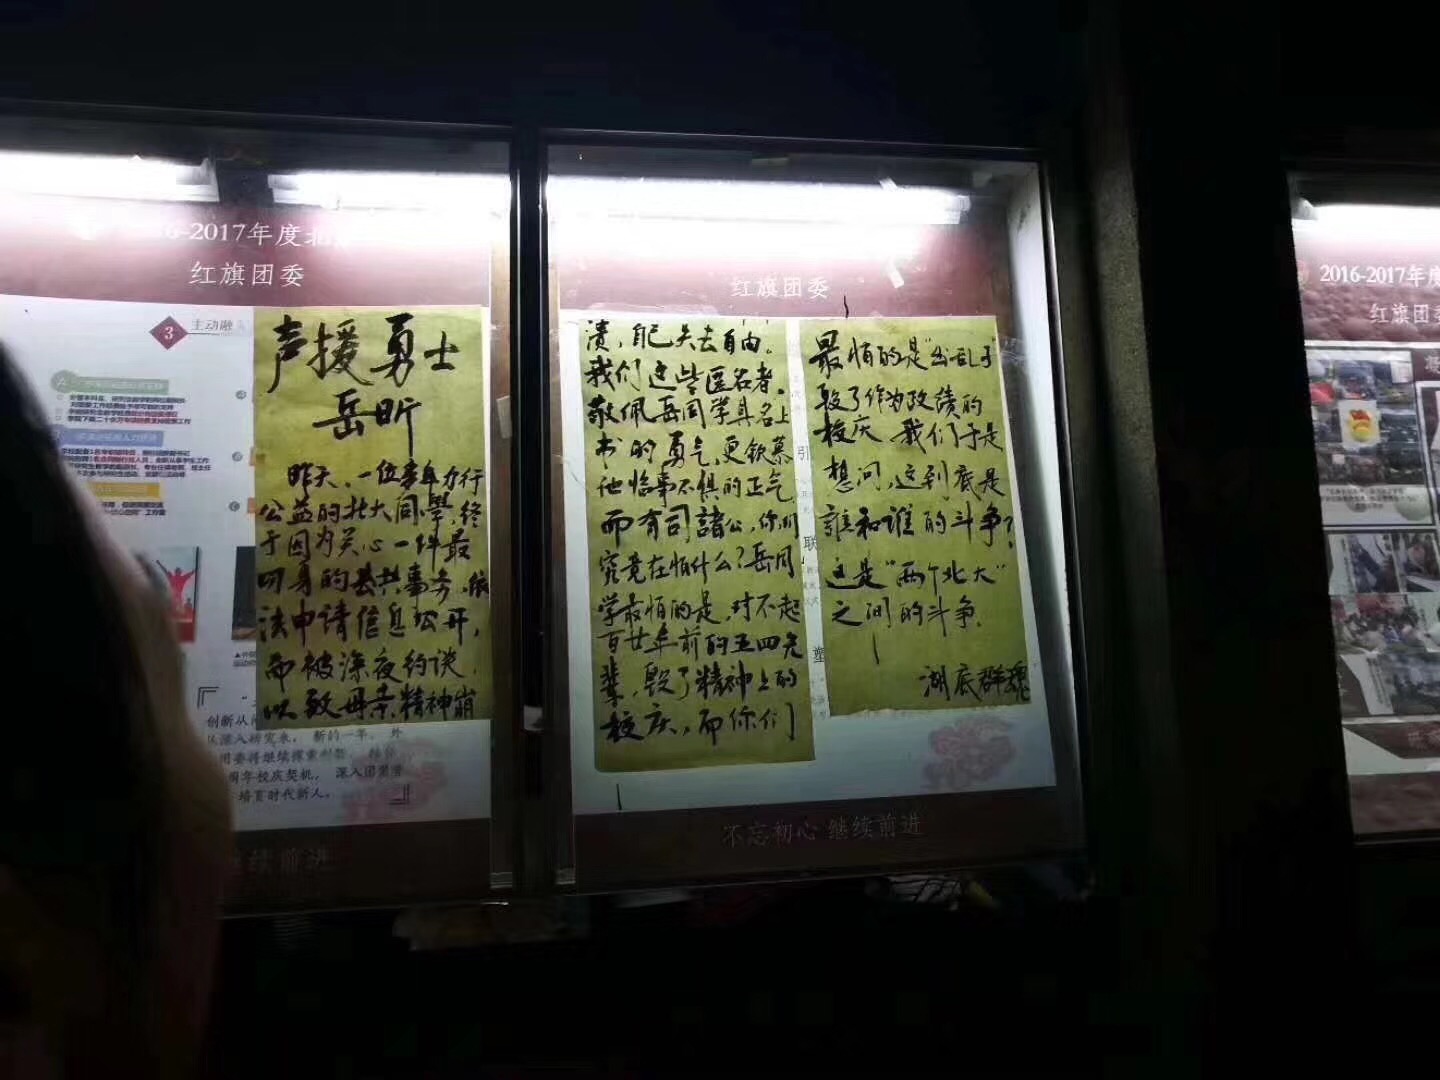 -2017年度北
红旗团委
3
主动融
声援勇士
岳昕
昨天，一位亲身力行
公益的北大同學，终
于因为关心一件最
切身的公共事务，依
法申请信息公开，
而被深夜约谈，
以致母亲精神崩
创新从
从深入研究来，新的一年，外
团委将继续探索
周年校庆契机，深入团
培育时代新人。
继续前进
红旗团委
溃，自己失去自由。
我们这些匿名者，
敬佩岳同学具名上
书的勇气，更钦慕
他临事不惧的正气。
而有司諸公，你们
究竟在怕什么？岳同
学最怕的是，对不起
百廿年前的五四先
辈，毁了精神上的
校庆，而你们
引
联
塑
最怕的是“出乱子”
毁了作为政绩的
校庆。我们于是
想问，这到底是
誰和谁的斗争？
这是“两个北大”
之间的斗争。
湖底群魂
不忘初心 继续前进
2016-2017年度
红旗团委